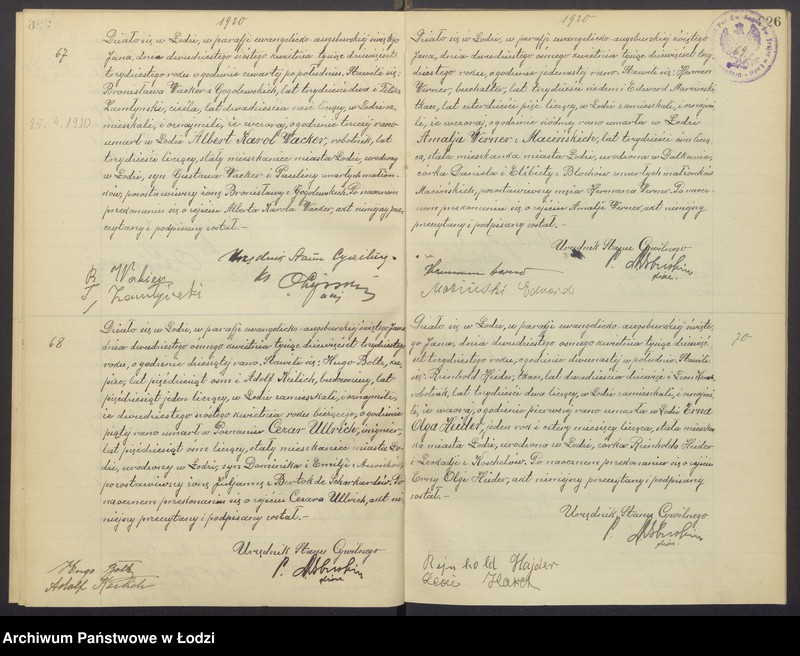 1930
67
Działo się w Łodzi, w parafji ewangelicko-augsburskiej świętego
Jana, dnia dwudziestego szóstego kwietnia tysiąc dziewięćset
trzydziestego roku o godzinie czwartej po południu. Stawili się:
Bronisława Wacker z Gogolewskich, lat trzydzieści dwa i Feliks
Zamłyński, cieśla, lat dwadzieścia liczący, w Łodzi za-
mieszkali, i oznajmili, że wczoraj, o godzinie trzeciej rano
25.4.1930
umarł w Łodzi Albert Karol Wacker, robotnik, lat
trzydzieści liczący, stały mieszkaniec miasta Łodzi, urodzony
w Łodzi, syn Gustawa Wacker i Pauliny umarłych małżon-
ków, pozostawiwszy żonę Bronisławę z Gogolewskich. Po naocznem
przekonaniu się o zejściu Alberta Karola Wacker, akt niniejszy prze-
czytany i podpisany został.—
Urzędnik Stanu Cywilnego
68
Działo się w Łodzi, w parafji ewangelicko-augsburskiej świętego Jana
dnia dwudziestego ósmego kwietnia tysiąc dziewięćset trzydziestego
roku, o godzinie dziesiątej rano. Stawili się: Hugo Boltz, ku-
piec, lat pięćdziesiąt osm i Adolf Keilich, budowniczy, lat
pięćdziesiąt jeden liczący, w Łodzi zamieszkali, i oznajmili,
że dwudziestego szóstego kwietnia roku bieżącego, o godzinie
piątej rano umarł w Poznaniu Cezar Ullrich, inżynier,
lat pięćdziesiąt osm liczący, stały mieszkaniec miasta Ło-
dzi, urodzony w Łodzi, syn Dominika i Emilji
pozostawiwszy żonę Juljannę z Bertok de Schorkerdów. Po
naocznem przekonaniu się o zejściu Cezara Ullrich, akt ni-
niejszy przeczytany i podpisany został.—
Urzędnik Stanu Cywilnego
Hugo Boltz
Adolf Keilich
1930
26
Działo się w Łodzi, w parafji ewangelicko-augsburskiej świętego
Jana, dnia dwudziestego ósmego kwietnia tysiąc dziewięćset trzy-
dziestego roku, o godzinie jedenastej rano. Stawili się: Herman
Werner, buchalter, lat trzydzieści siedem i Edward Maciński
tkacz, lat czterdzieści pięć liczący, w Łodzi zamieszkali, i oznajmi-
li, że wczoraj, o godzinie siódmej rano umarła w Łodzi
Amalja Werner z Macińskich, lat trzydzieści osm liczą-
ca, stała mieszkanka miasta Łodzi, urodzona w Dalkowie,
córka Daniela i Elżbiety z Blochów umarłych małżonków
Macińskich, pozostawiwszy męża Hermana Werner. Po naocz-
nem przekonaniu się o zejściu Amalji Werner, akt niniejszy
przeczytany i podpisany został.—
Urzędnik Stanu Cywilnego
Maciński Edward
70
Działo się w Łodzi, w parafji ewangelicko-augsburskiej święte-
go Jana, dnia dwudziestego ósmego kwietnia tysiąc dziewięć-
set trzydziestego roku, o godzinie dwunastej w południe. Stawili
się: Reinhold Heider, tkacz, lat dwadzieścia dziewięć i Leon Harek,
robotnik, lat trzydzieści dwa liczący, w Łodzi zamieszkali, i oznajmi-
li, że wczoraj, o godzinie pierwszej rano umarła w Łodzi Erna
Olga Heider, jeden rok i cztery miesięcy licząca, stała mieszkan-
ka miasta Łodzi, urodzona w Łodzi, córka Reinholda Heider
i Leokadji z Kochelów. Po naocznem przekonaniu się o zejściu
Erny Olgi Heider, akt niniejszy przeczytany i podpisany
został.—
Urzędnik Stanu Cywilnego
Rijnhold Hajder
Leon Harek
Archiwum Państwowe w Łodzi